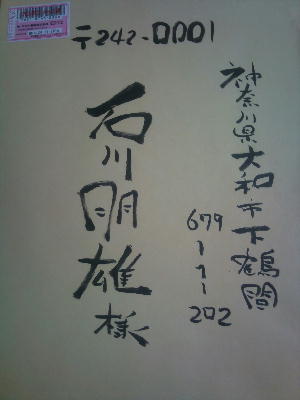 〒242-0001
神奈川県大和市下鶴間
679-1-1-202
石川明雄様